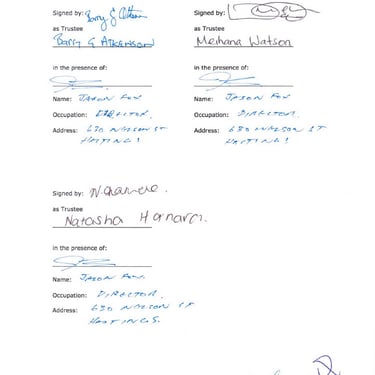 Signed by:
as Trustee
Barry G Atkinson
in the presence of:
Name: JASON FOX
Occupation: DIRECTOR
Address: 630 NELSON ST
HASTINGS
Signed by:
as Trustee
Meihana Watson
in the presence of:
Name: JASON FOX
Occupation: DIRECTOR.
Address: 630 NELSON ST
HASTINGS
Signed by:
as Trustee
Natasha
in the presence of:
Name: JASON FOX.
Occupation: DIRECTOR.
Address: 630 NELSON ST
HASTINGS.